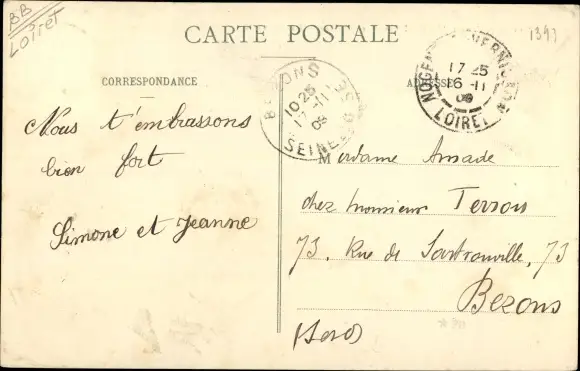 BB
Loiret
CARTE POSTALE
1393
CORRESPONDANCE
ADRESSE
BEZONS
10 25
17 - 11
09
SEINE
NOGENT VERNISSON
17 25
16 - 11
09
LOIRET
Nous t'embrassons
bien fort
Simone et Jeanne
Madame Amade
chez monsieur Terrou
73, Rue de Sartrouville, 73
Bezons